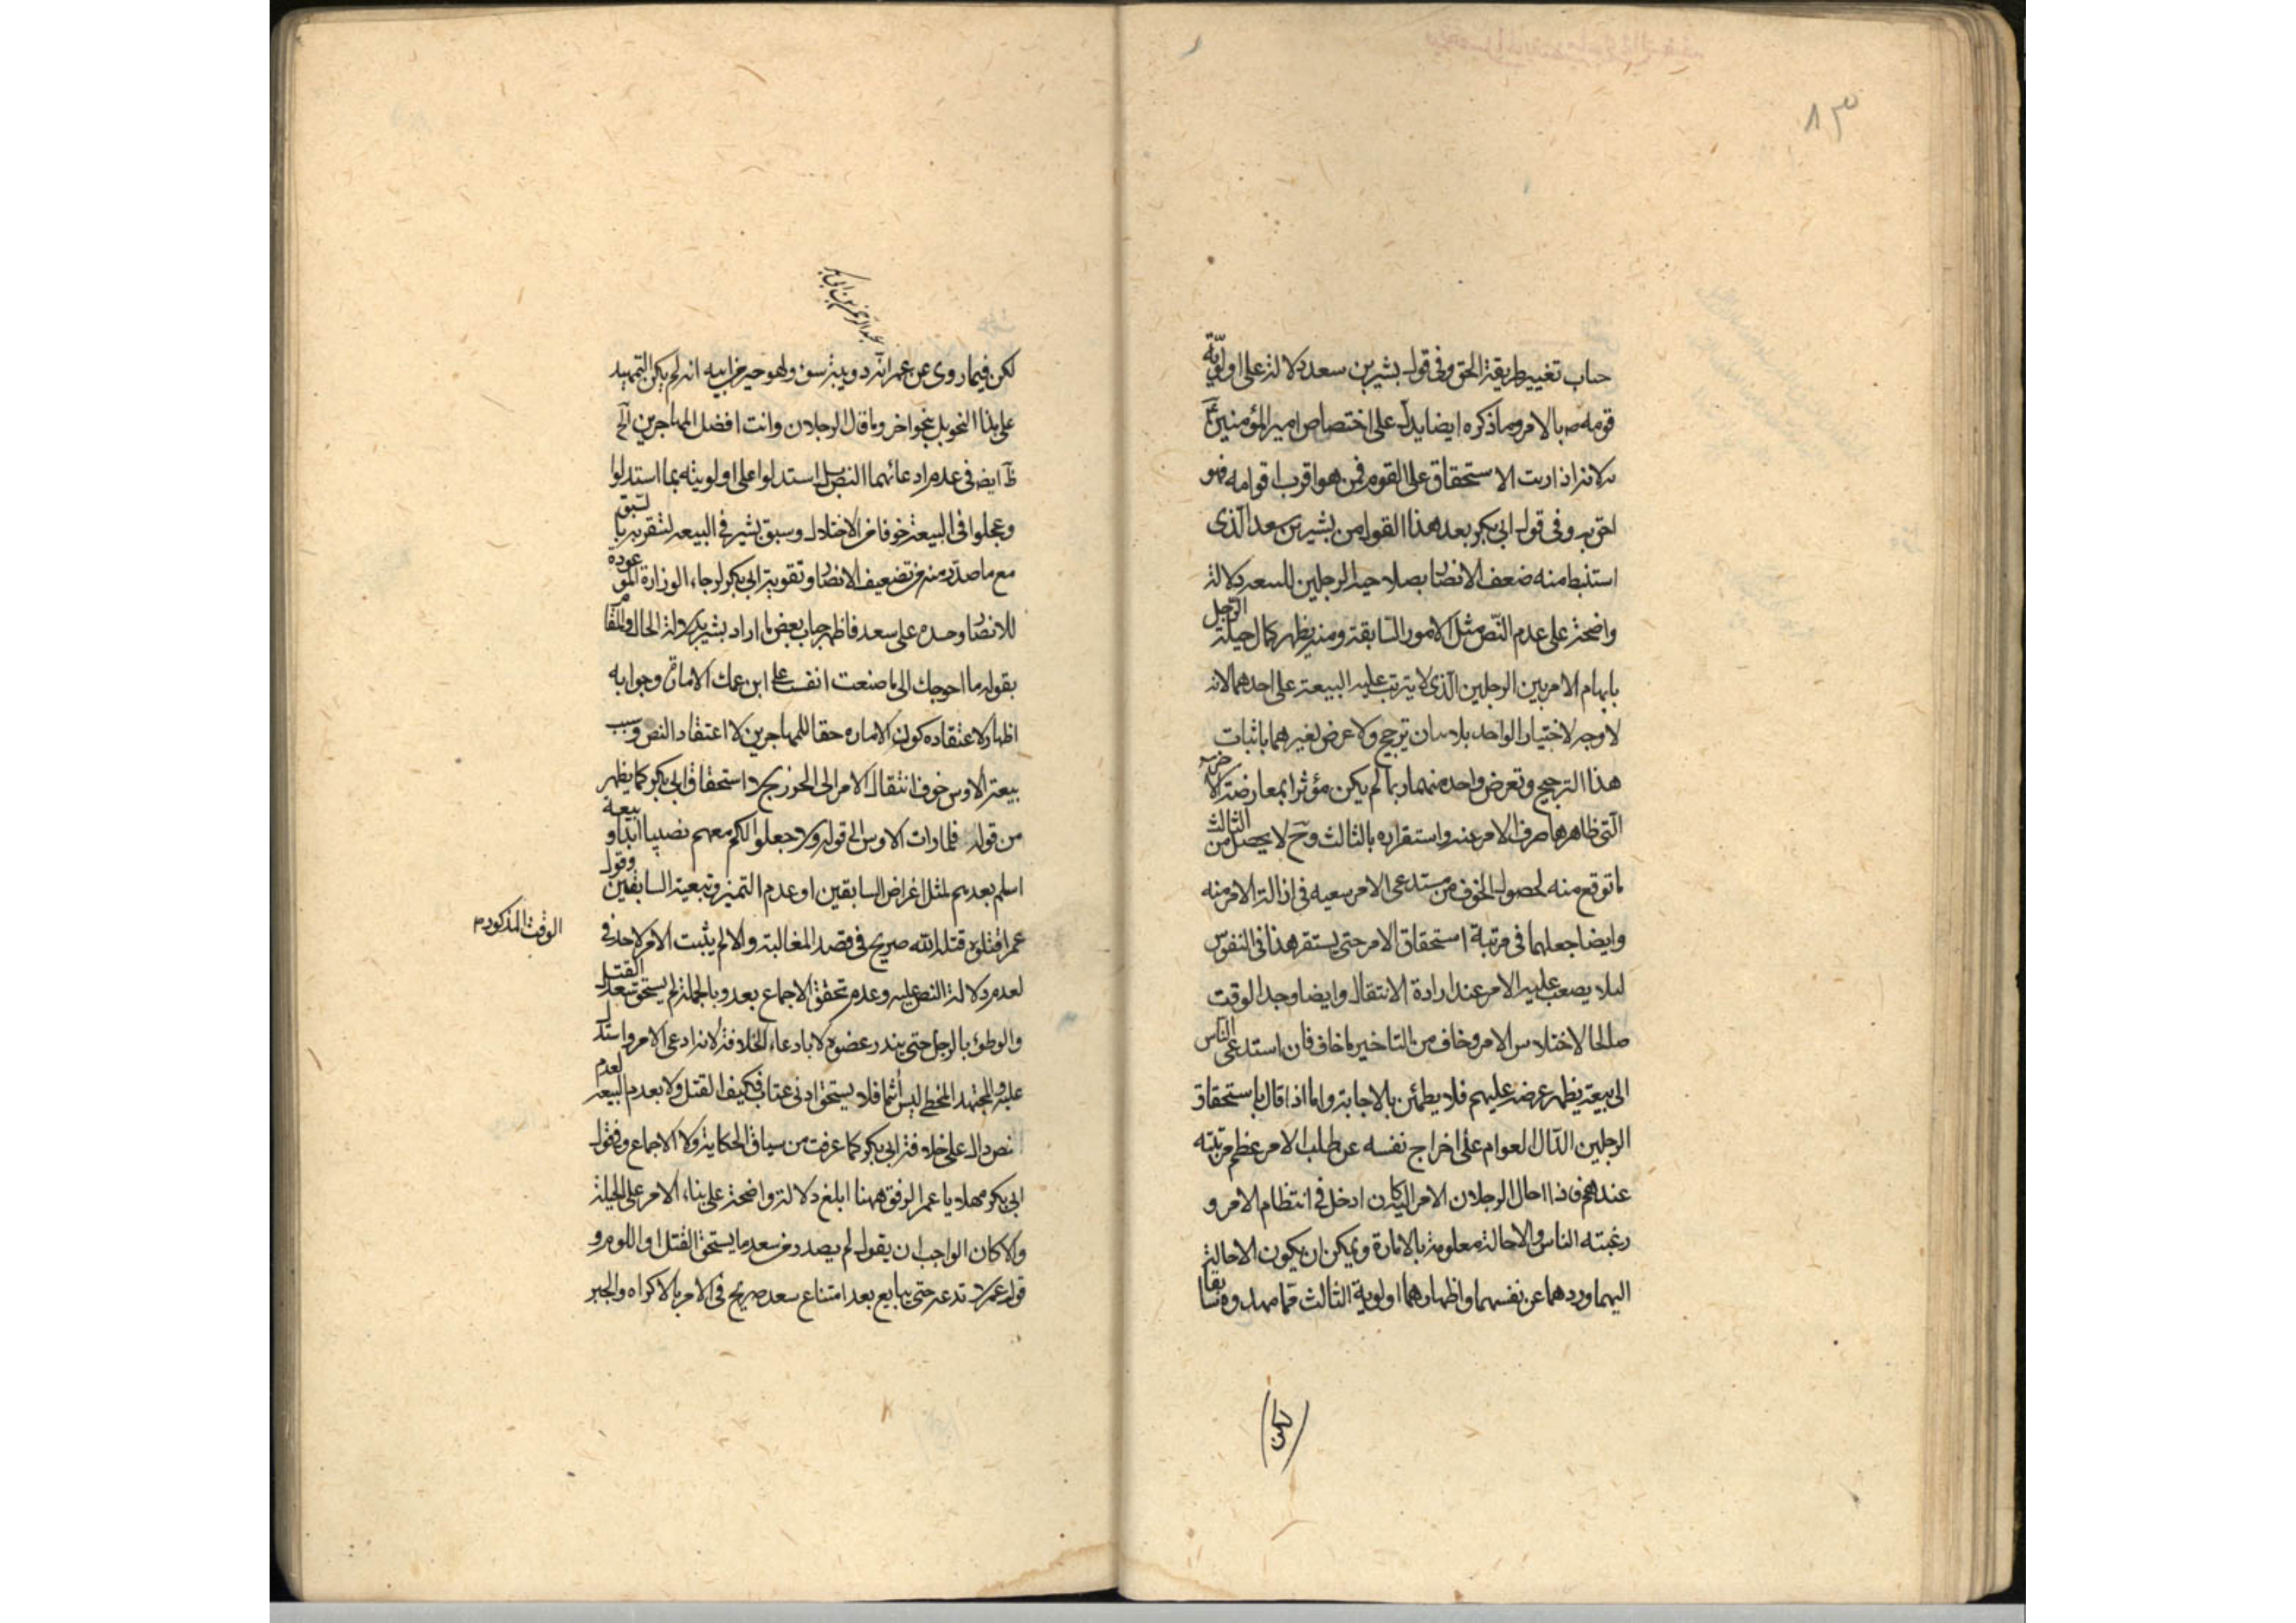 ۸۳
حباب تغيير طريقة الحق وفى قول بشير بن سعد دلالة على اولوية
قومه ص بالامر وما ذكره ايضا يدل على اختصاص امير المؤمنين ع
به لانه اذا ريت الاستحقاق على القوم فمن هو اقرب اقوامه فهو
احق به وفى قول ابى بكر بعد هذا القول من بشير بن سعد الّذى
استنبط منه ضعف الانصار بصلاحية الرجلين للبيعة دلالة
واضحة على عدم النّص مثل الامور السّابقة ومنه يظهر كمال حيلة الرّجل
بابهام الامر بين الرجلين الّذى لا يترتب عليه البيعة على احدهما لانه
لا وجه لاختيار الواحد بلا بيان ترجيح ولا عرض لغيرهما باثبات
هذا الترجيح وتعرض واحد منهما ربما لم يكن مؤثرا بمعارضة الاخر به
الّتى ظاهرها صرف الامر عنه واستقراره بالثالث وح لا يحصل من الثالث
ما توقع منه لحصول الخوف من مستدعى الامر سعيه فى ازالة الامر منه
وايضا جعلهما فى مرتبة استحقاق الامر حتى يستقر هذا فى النفوس
لئلا يصعب عليه الامر عند ارادة الانتقال وايضا وجد الوقت
صالحا لاختلاس الامر وخاف من التاخير ما خاف فان استدعى الناس
الى بيعته يظهر عرضه عليهم فلا يطمئن بالاجابة واما اذا قال باستحقاق
الرجلين الدّال لعوام على اخراج نفسه عن طلب الامر عظم مرتبته
عندهم فاذا احال الرجلان الامر اليه كان ادخل فى انتظام الامر و
رغبته الناس والاحالة معلومة بالامارة ويمكن ان يكون الاحالة
اليهما وردهما عن نفسهما واظهارهما اولوية الثالث مما مهدوه سابقا
لكن
عبد الرحمن بن ابى بكر
لكن فيما روى عن عمر انه دويبة سوء ولهو خير من ابيه انه لم يكن التمهيد
على هذا النحو بل بنحو اخر وما قال الرجلان وانت افضل المهاجرين الخ
ظ ايضا فى عدم ادعائهما النص بل استدلوا على اولويته بما استدلوا
وعجلوا فى البيعة خوفا من الاختلال وسبق بشير فى البيعة لتقربه بالسبق
مع ما صدر منه من تضعيف الانصار وتقوية ابى بكر لرجاء الوزارة الموعودة
للانصار وحسده على سعد فاظهر حباب بعض ما اراد بشير بدلالة الحال والمقام
بقوله ما احوجك الى ما صنعت انفست على ابن عمك الامارة وجوابه
اظهار لاعتقاده كون الامارة حقا للمهاجرين لا اعتقاد النص وسبب
بيعة الاوس خوف انتقال الامر الى الخزرج لا استحقاق ابى بكر كما يظهر
من قوله فلما رات الاوس الى قوله ولا جعلوا لكم معهم نصيبا ابدا وبيعة
اسلم بعدهم لمثل اغراض السابقين او عدم التميز وتبعية السابقين وقول
عمر اقتلوه قتله الله صريح فى قصد المغالبة والا لم يثبت الامر لاحد فى
الوقت المذكور م
لعدم دلالة النص عليه وعدم تحقق الاجماع بعد وبالجملة لم يستحق سعد القتل
والوطؤ بالرجل حتى يندر عضوه لا بادعاء الخلافة لانه ادعى الامر واستدل
عليه والمجتهد المخطى ليس آثما فلا يستحق ادنى عتاب فكيف القتل ولا بعدم البيعة لعدم
نص دال على خلافة ابى بكر كما عرفت من سياق الحكاية ولا الاجماع وفى قول
ابى بكر مهلا يا عمر الرفق ههنا ابلغ دلالة واضحة على بناء الامر على الحيلة
والا كان الواجب ان يقول لم يصدر من سعد ما يستحق القتل او اللوم و
قول عمر لا تدعه حتى يبايع بعد امتناع سعد صريح فى الامر بالاكراه والجبر